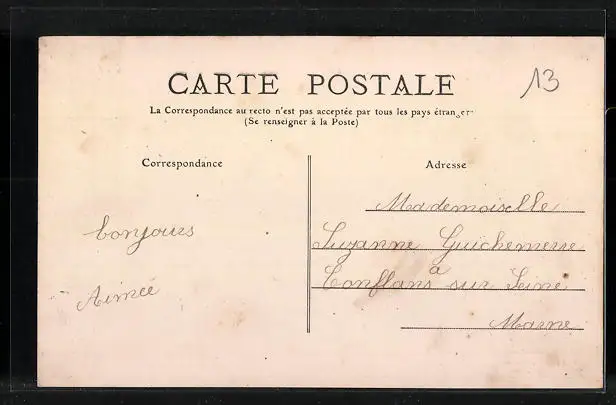 CARTE POSTALE
13
La Correspondance au recto n'est pas acceptée par tous les pays étrangers
(Se renseigner à la Poste)
Correspondance
bonjours
Aimée
Adresse
Mademoiselle
Suzanne Guichemerre
à
Conflans sur Seine
Marne